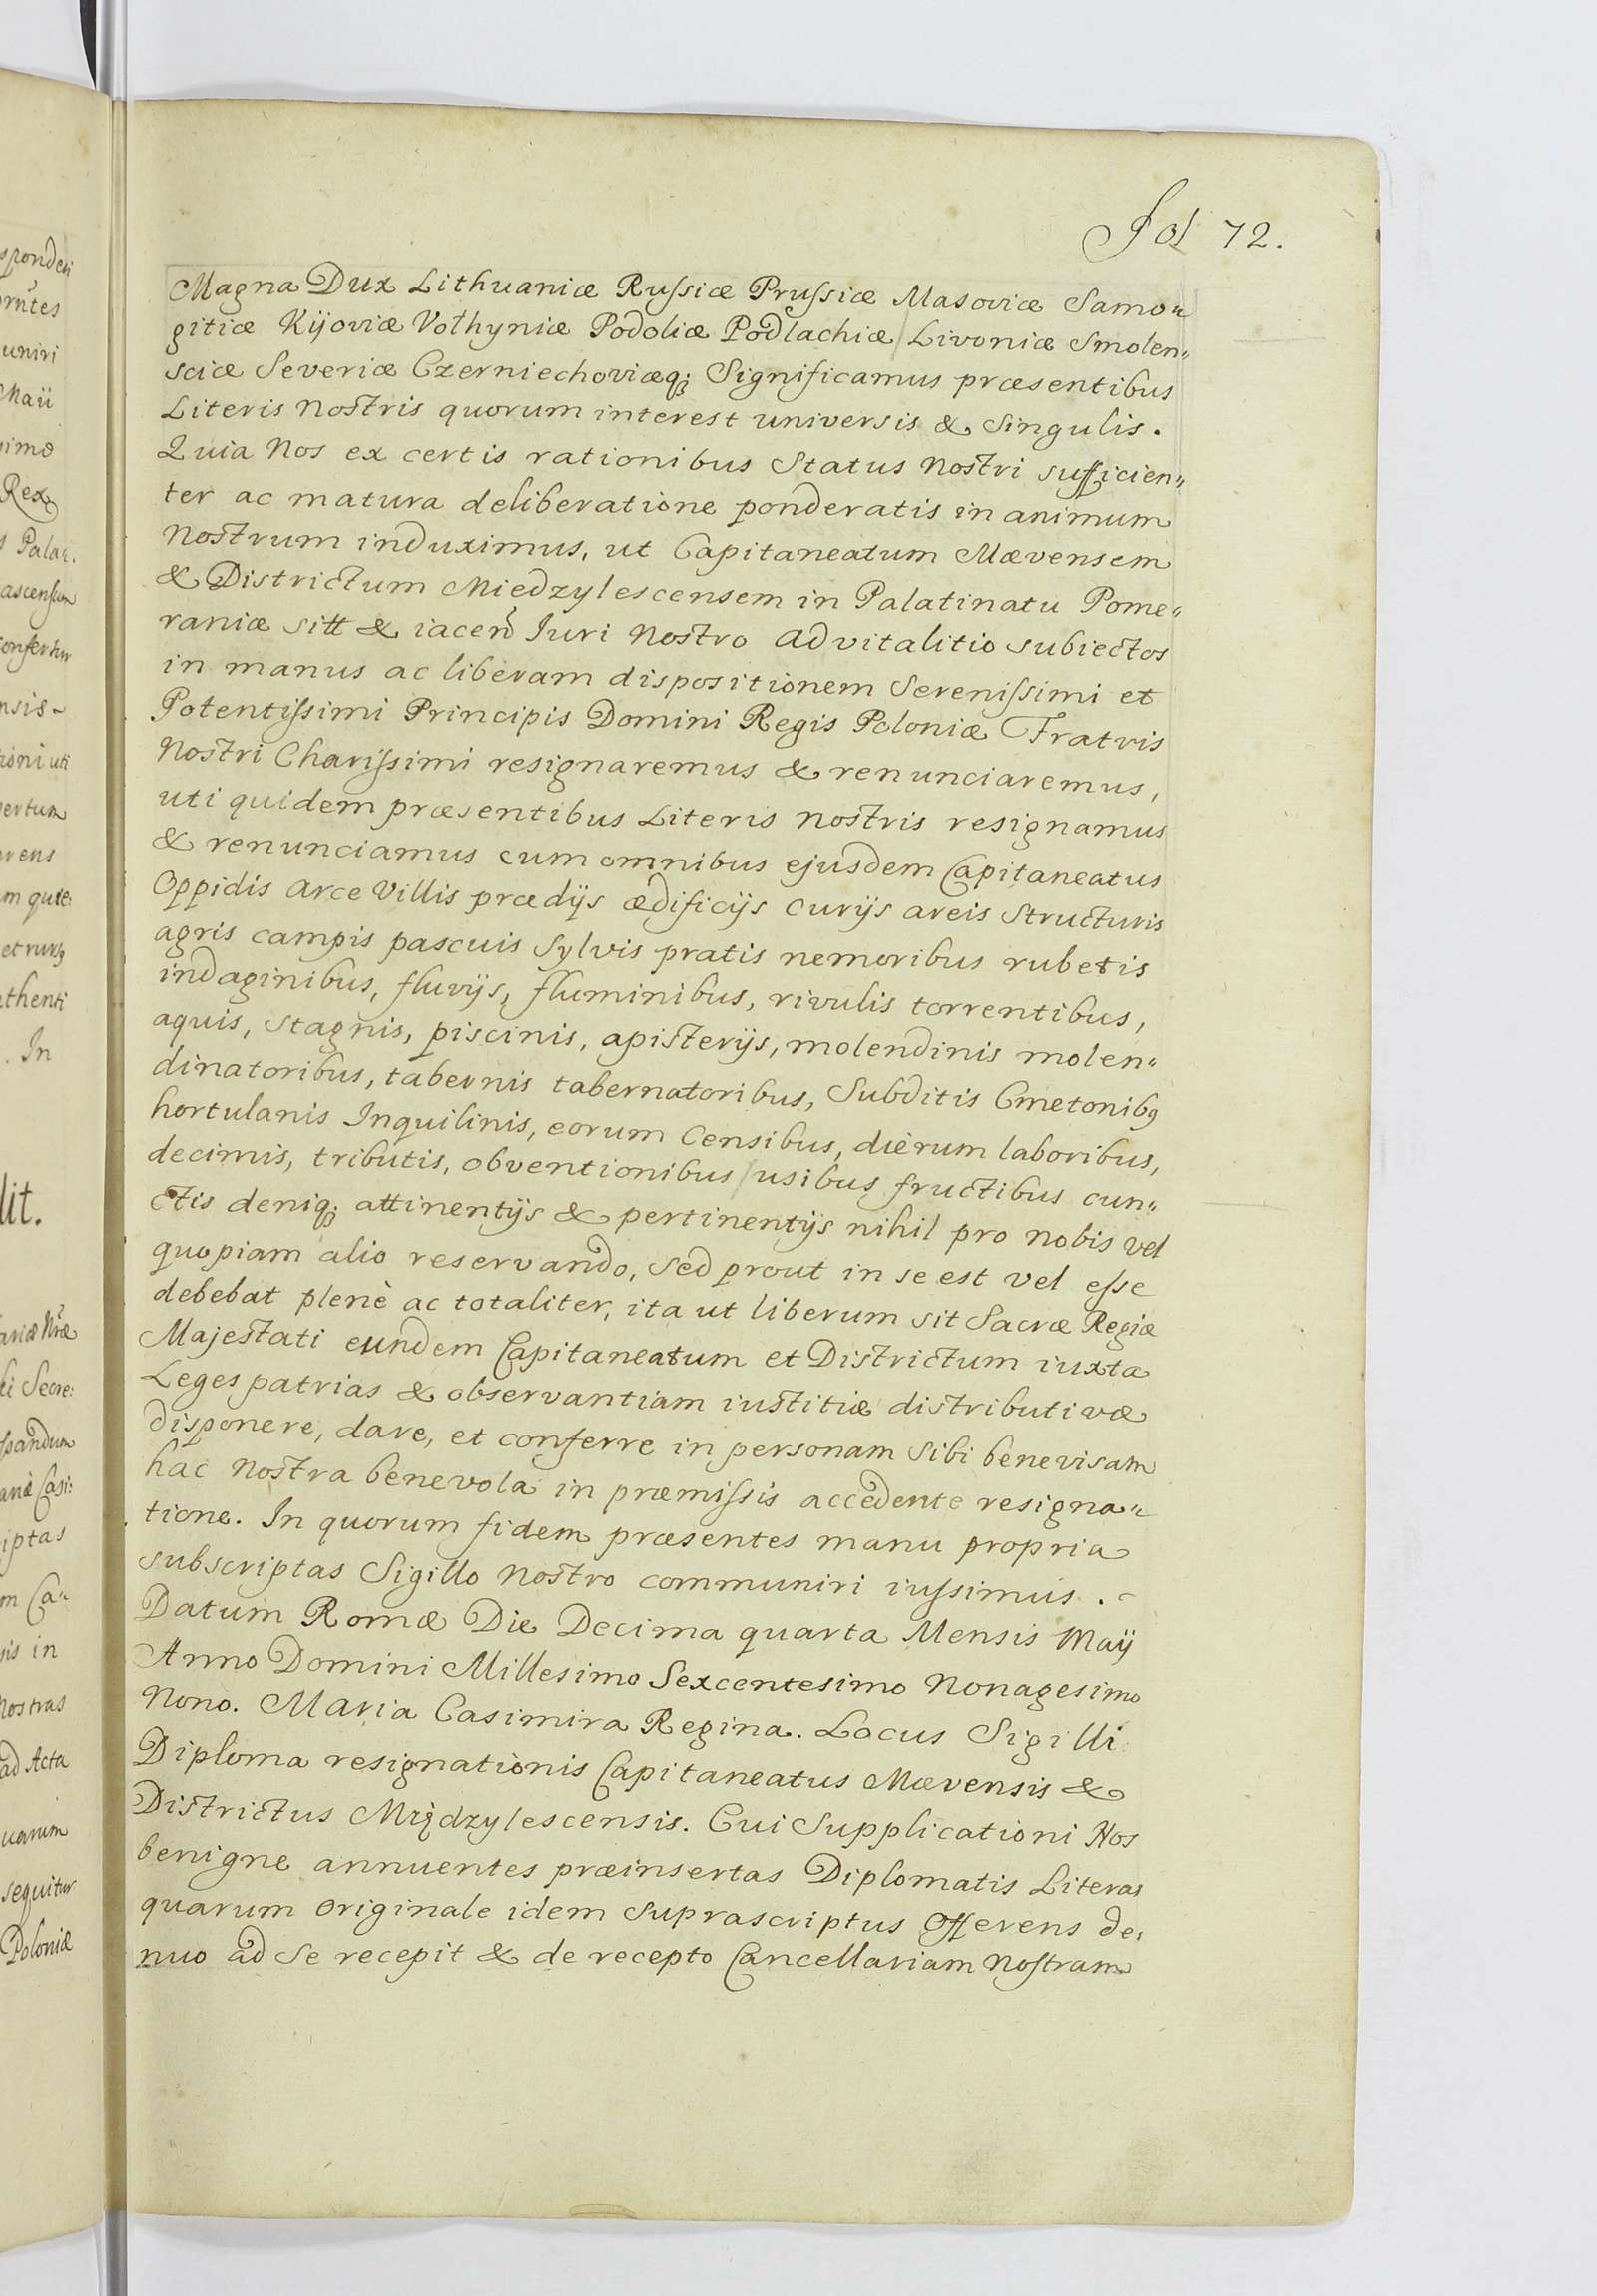 Fol 72.
Magna Dux Lithuaniæ Russiæ Prussiæ Masoviæ Samo„
gitiæ Kijoviæ Volhyniæ Podoliæ Podlachiæ Livoniæ Smolen„
sciæ Severiæ Czerniechoviæq; Significamus præsentibus
Literis nostris quorum interest universis & Singulis.
Quia Nos ex certis rationibus Status Nostri sufficien„
ter ac matura deliberatione ponderatis in animum
Nostrum induximus, ut Capitaneatum Mævensem
& Districtum Miedzylescensem in Palatinatu Pome„
raniæ sitt & iacen Iuri Nostro advitalitio subiectos
in manus ac liberam dispositionem Serenissimi et
Potentissimi Principis Domini Regis Poloniæ Fratris
Nostri Charissimi resignaremus & renunciaremus,
uti quidem præsentibus Literis nostris resignamus
& renunciamus cum omnibus ejusdem Capitaneatus
Oppidis Arce Villis prædijs ædificijs curijs areis Structuris
agris campis pascuis Sylvis pratis nemoribus rubetis
indaginibus, fluvijs, fluminibus, rivulis torrentibus,
aquis, stagnis, piscinis, apisterijs, molendinis molen„
dinatoribus, tabernis tabernatoribus, Subditis Cmetonibꝰ
hortulanis Inquilinis, eorum Censibus, dierum laboribus,
decimis, tributis, obventionibus usibus fructibus cun„
ctis deniq; attinentijs & pertinentijs nihil pro nobis vel
quopiam alio reservando, sed prout in se est vel esse
debebat plenè ac totaliter, ita ut liberum sit Sacræ Regiæ
Majestati eundem Capitaneatum et Districtum iuxta
Leges patrias & observantiam iustitiæ distributivæ
disponere, dare, et conferre in personam Sibi benevisam
hac Nostra benevola in præmissis accedente resigna„
tione. In quorum fidem præsentes manu propria
subscriptas Sigillo Nostro communiri iussimus.
Datum Romæ Die Decima quarta Mensis Maij
Anno Domini Millesimo Sexcentesimo Nonagesimo
Nono. Maria Casimira Regina. Locus Sigilli
Diploma resignationis Capitaneatus Mævensis &
Districtus Międzylescensis. Cui Supplicationi Nos
benigne annuentes præinsertas Diplomatis Literas
quarum originale idem suprascriptus Offerens de„
nuo ad se recepit & de recepto Cancellariam Nostram